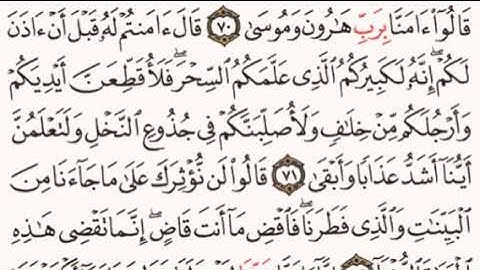 قَالُوٓا۟ ءَامَنَّا بِرَبِّ هَٰرُونَ وَمُوسَىٰ ٧٠ قَالَ ءَامَنتُمْ لَهُۥ قَبْلَ أَنْ ءَاذَنَ
لَكُمْ ۖ إِنَّهُۥ لَكَبِيرُكُمُ ٱلَّذِى عَلَّمَكُمُ ٱلسِّحْرَ ۖ فَلَأُقَطِّعَنَّ أَيْدِيَكُمْ
وَأَرْجُلَكُم مِّنْ خِلَٰفٍ وَلَأُصَلِّبَنَّكُمْ فِى جُذُوعِ ٱلنَّخْلِ وَلَتَعْلَمُنَّ
أَيُّنَآ أَشَدُّ عَذَابًا وَأَبْقَىٰ ٧١ قَالُوا۟ لَن نُّؤْثِرَكَ عَلَىٰ مَا جَآءَنَا مِنَ
ٱلْبَيِّنَٰتِ وَٱلَّذِى فَطَرَنَا ۖ فَٱقْضِ مَآ أَنتَ قَاضٍ ۖ إِنَّمَا تَقْضِى هَٰذِهِ